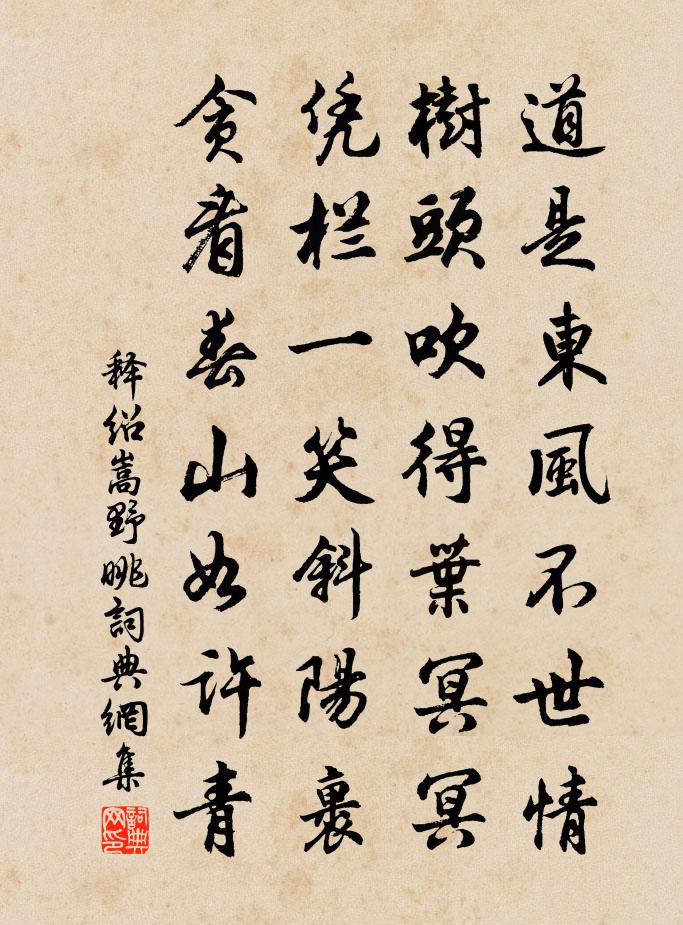 道是東風不世情
樹頭吹得葉冥冥
凭栏一笑斜陽裏
贪看春山如许青
释绍嵩野眺詞典網集
詞典
网印